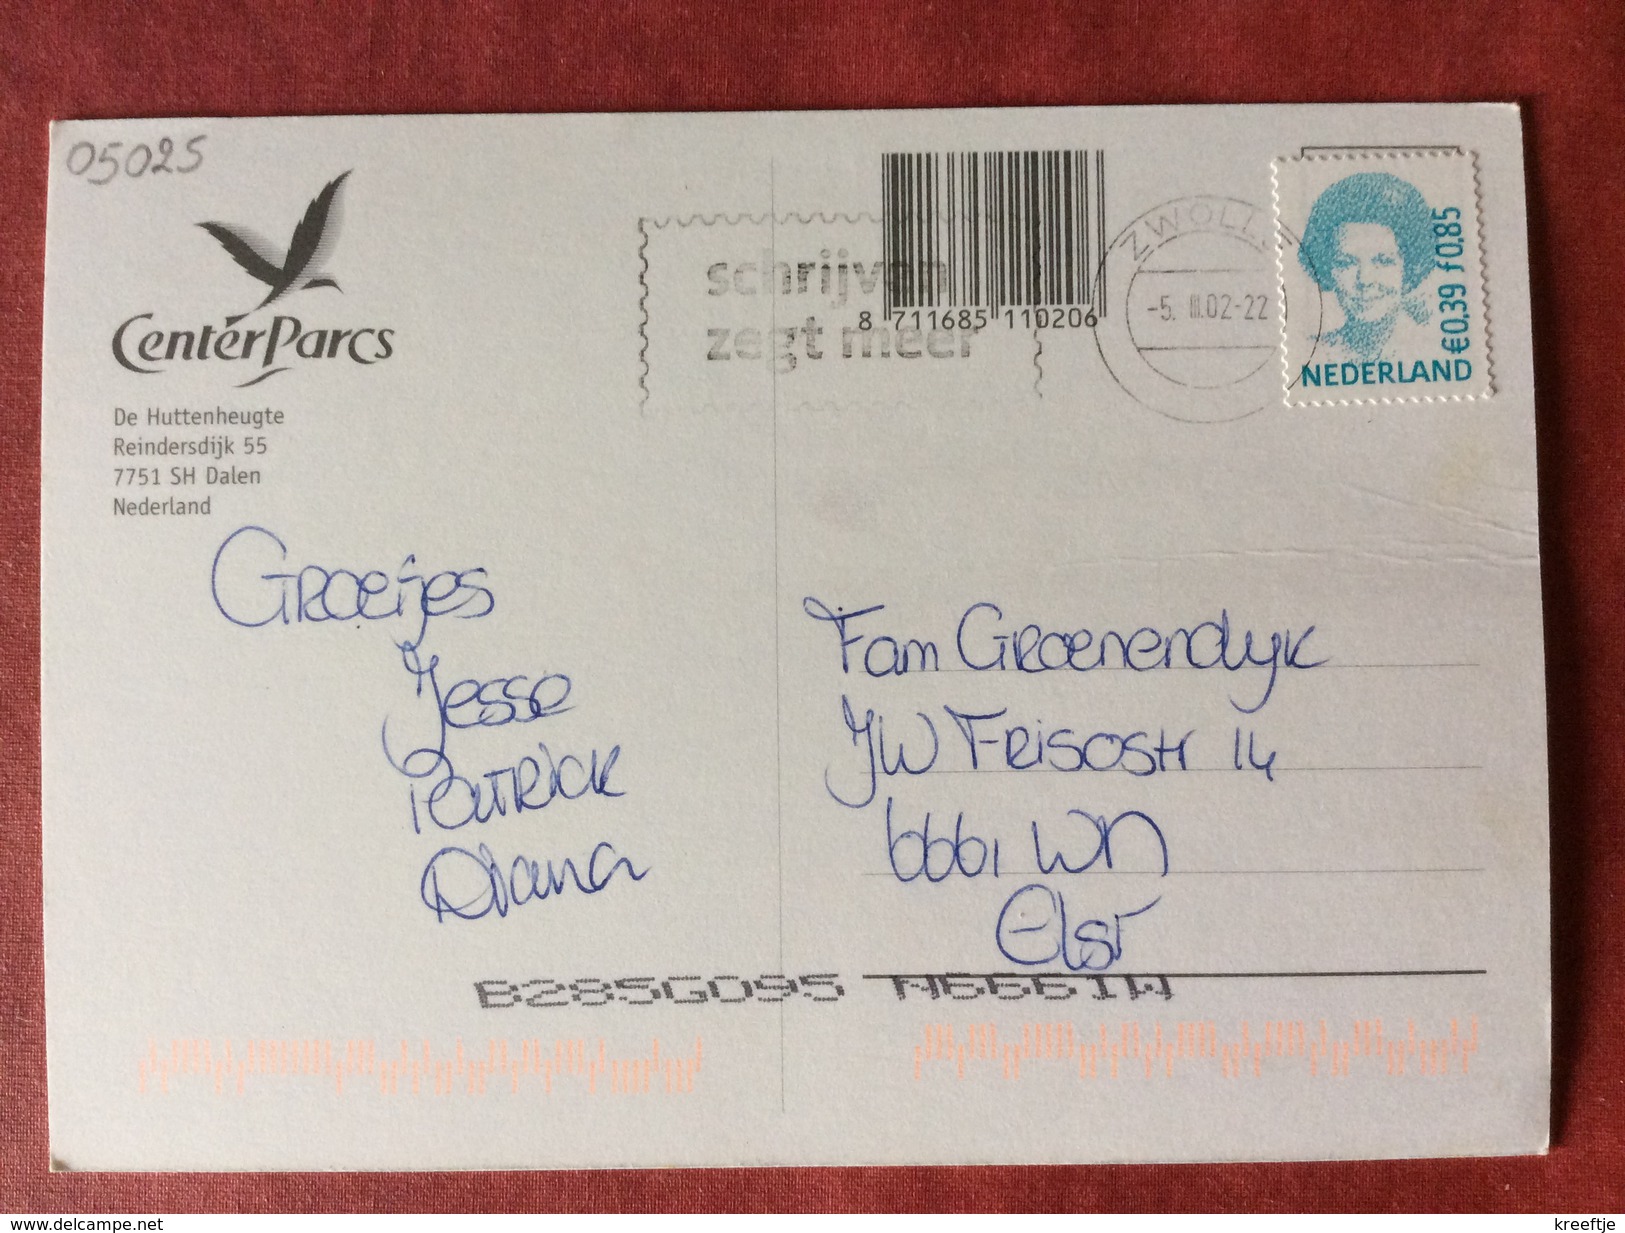 05025
CenterParcs
De Huttenheugte
Reindersdijk 55
7751 SH Dalen
Nederland
schrijven
zegt meer
8 711685 110206
ZWOLLE
-5. III.02-22
€0,39 f0,85
NEDERLAND
Groetjes
Jesse
Patrick
Diana
Fam Groenendijk
JW Frisostr 14
6661 WN
Elst
B285G095 N6661W
www.delcampe.net
kreeftje